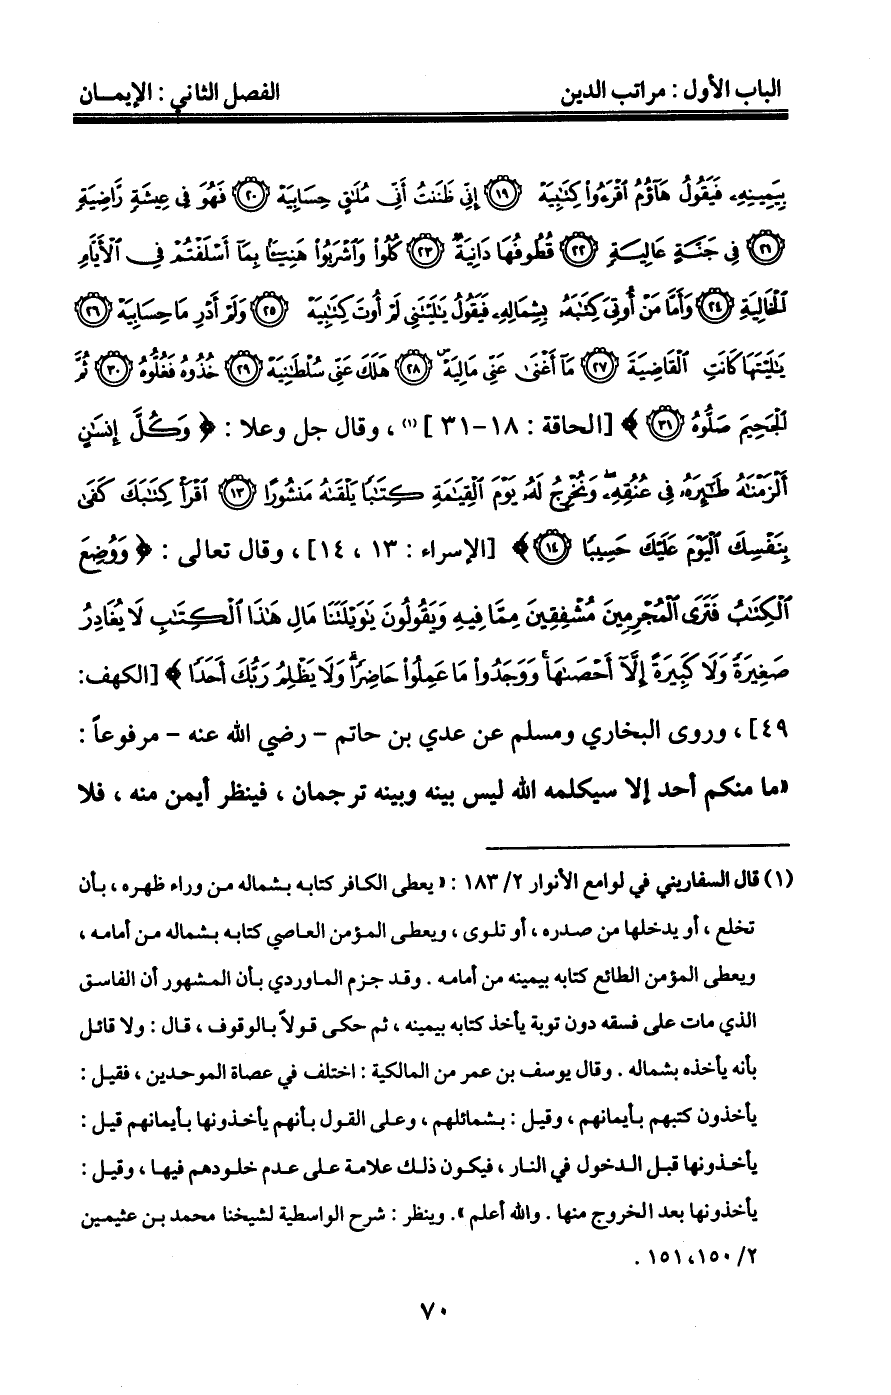 الباب الأول : مراتب الدين
الفصل الثاني : الإيمـــان
بِيَمِينِهِۦ فَيَقُولُ هَآؤُمُ ٱقْرَءُوا۟ كِتَٰبِيَهْ ﴿١٩﴾ إِنِّى ظَنَنتُ أَنِّى مُلَٰقٍ حِسَابِيَهْ ﴿٢٠﴾ فَهُوَ فِى عِيشَةٍ رَّاضِيَةٍ
﴿٢١﴾ فِى جَنَّةٍ عَالِيَةٍ ﴿٢٢﴾ قُطُوفُهَا دَانِيَةٌ ﴿٢٣﴾ كُلُوا۟ وَٱشْرَبُوا۟ هَنِيٓـًٔۢا بِمَآ أَسْلَفْتُمْ فِى ٱلْأَيَّامِ
ٱلْخَالِيَةِ ﴿٢٤﴾ وَأَمَّا مَنْ أُوتِىَ كِتَٰبَهُۥ بِشِمَالِهِۦ فَيَقُولُ يَٰلَيْتَنِى لَمْ أُوتَ كِتَٰبِيَهْ ﴿٢٥﴾ وَلَمْ أَدْرِ مَا حِسَابِيَهْ ﴿٢٦﴾
يَٰلَيْتَهَا كَانَتِ ٱلْقَاضِيَةَ ﴿٢٧﴾ مَآ أَغْنَىٰ عَنِّى مَالِيَهْ ۜ ﴿٢٨﴾ هَلَكَ عَنِّى سُلْطَٰنِيَهْ ﴿٢٩﴾ خُذُوهُ فَغُلُّوهُ ﴿٣٠﴾ ثُمَّ
ٱلْجَحِيمَ صَلُّوهُ ﴿٣١﴾ ﴾ [الحاقة : ١٨-٣١ ] (١) ، وقال جل وعلا : ﴿ وَكُلَّ إِنسَٰنٍ
أَلْزَمْنَٰهُ طَٰٓئِرَهُۥ فِى عُنُقِهِۦ ۖ وَنُخْرِجُ لَهُۥ يَوْمَ ٱلْقِيَٰمَةِ كِتَٰبًا يَلْقَىٰهُ مَنشُورًا ﴿١٣﴾ ٱقْرَأْ كِتَٰبَكَ كَفَىٰ
بِنَفْسِكَ ٱلْيَوْمَ عَلَيْكَ حَسِيبًا ﴿١٤﴾ ﴾ [الإسراء : ١٣ ، ١٤] ، وقال تعالى : ﴿ وَوُضِعَ
ٱلْكِتَٰبُ فَتَرَى ٱلْمُجْرِمِينَ مُشْفِقِينَ مِمَّا فِيهِ وَيَقُولُونَ يَٰوَيْلَتَنَا مَالِ هَٰذَا ٱلْكِتَٰبِ لَا يُغَادِرُ
صَغِيرَةً وَلَا كَبِيرَةً إِلَّآ أَحْصَىٰهَا ۚ وَوَجَدُوا۟ مَا عَمِلُوا۟ حَاضِرًا ۗ وَلَا يَظْلِمُ رَبُّكَ أَحَدًا ﴾ [الكهف:
٤٩] ، وروى البخاري ومسلم عن عدي بن حاتم – رضي الله عنه – مرفوعاً :
«ما منكم أحد إلا سيكلمه الله ليس بينه وبينه ترجمان ، فينظر أيمن منه ، فلا
(١) قال السفاريني في لوامع الأنوار ٢/ ١٨٣ : « يعطى الكافر كتابه بشماله من وراء ظهره ، بأن
تخلع ، أو يدخلها من صدره ، أو تلوى ، ويعطى المؤمن العاصي كتابه بشماله من أمامه ،
ويعطى المؤمن الطائع كتابه بيمينه من أمامه . وقد جزم الماوردي بأن المشهور أن الفاسق
الذي مات على فسقه دون توبة يأخذ كتابه بيمينه ، ثم حكى قولاً بالوقوف ، قال : ولا قائل
بأنه يأخذه بشماله . وقال يوسف بن عمر من المالكية : اختلف في عصاة الموحدين ، فقيل :
يأخذون كتبهم بأيمانهم ، وقيل : بشمائلهم ، وعلى القول بأنهم يأخذونها بأيمانهم قيل :
يأخذونها قبل الدخول في النار ، فيكون ذلك علامة على عدم خلودهم فيها ، وقيل :
يأخذونها بعد الخروج منها . والله أعلم ». وينظر : شرح الواسطية لشيخنا محمد بن عثيمين
٢/ ١٥٠، ١٥١ .
٧٠